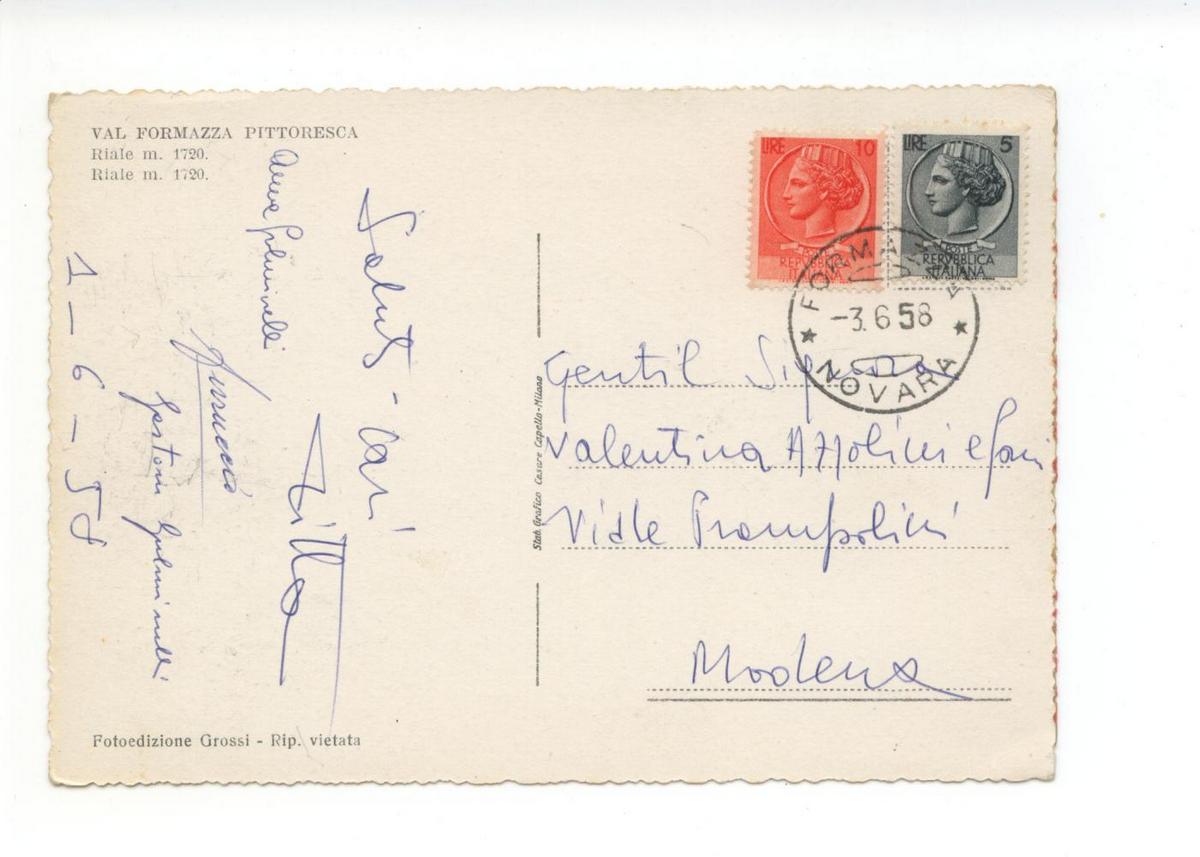 VAL FORMAZZA PITTORESCA
Riale m. 1720.
Riale m. 1720.
LIRE 10
POSTE
REPUBBLICA
ITALIANA
LIRE 5
POSTE
REPVBBLICA
ITALIANA
FORMAZZA
-3.6 58
NOVARA
1-6-58
Saluti-cari
Gentil Signora
Valentina Azzolini e fam
Viale Prampolini
Modena
Stab. Grafico Cesare Capello-Milano
Fotoedizione Grossi - Rip. vietata